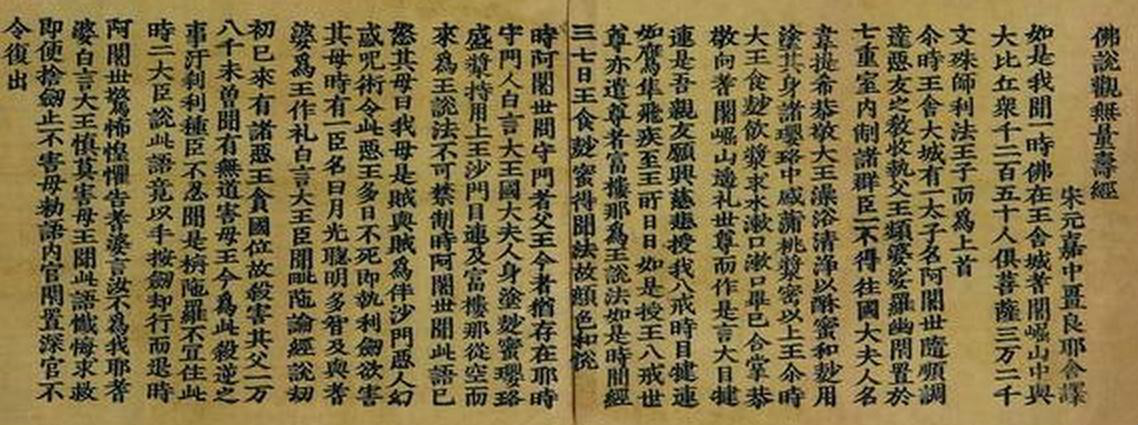 佛說觀無量壽經
宋元嘉中畺良耶舍譯
如是我聞一時佛在王舍城耆闍崛山中與
大比丘衆千二百五十人俱菩薩三万二千
文殊師利法王子而爲上首
尒時王舍大城有一太子名阿闍世隨順調
達惡友之教收執父王頻婆娑羅幽閇置於
七重室内制諸群臣一不得往國大夫人名
韋提希恭敬大王澡浴清淨以酥蜜和麨用
塗其身諸瓔珞中盛蒲桃漿密以上王尒時
大王食麨飲漿求水漱口漱口畢已合掌恭
敬向耆闍崛山遥礼世尊而作是言大目揵
連是吾親友願興慈悲授我八戒時目揵連
如鷹隼飛疾至王所日日如是授王八戒世
尊亦遣尊者富樓那爲王說法如是時閒經
三七日王食麨蜜得聞法故顔色和悅
時阿闍世問守門者父王今者猶存在耶時
守門人白言大王國大夫人身塗麨蜜瓔珞
盛漿持用上王沙門目連及富樓那從空而
來爲王說法不可禁制時阿闍世聞此語已
怒其母曰我母是賊與賊爲伴沙門惡人幻
惑呪術令此惡王多日不死即執利劔欲害
其母時有一臣名曰月光聰明多智及與耆
婆爲王作礼白言大王臣聞毗陁論經說劫
初已來有諸惡王貪國位故殺害其父一万
八千未曾聞有無道害母王今爲此殺逆之
事汙刹利種臣不忍聞是栴陁羅不宜住此
時二大臣說此語竟以手按劔却行而退時
阿闍世驚怖惶懼告耆婆言汝不爲我耶耆
婆白言大王慎莫害母王聞此語懺悔求救
即便捨劔止不害母勑語内官閇置深宮不
令復出